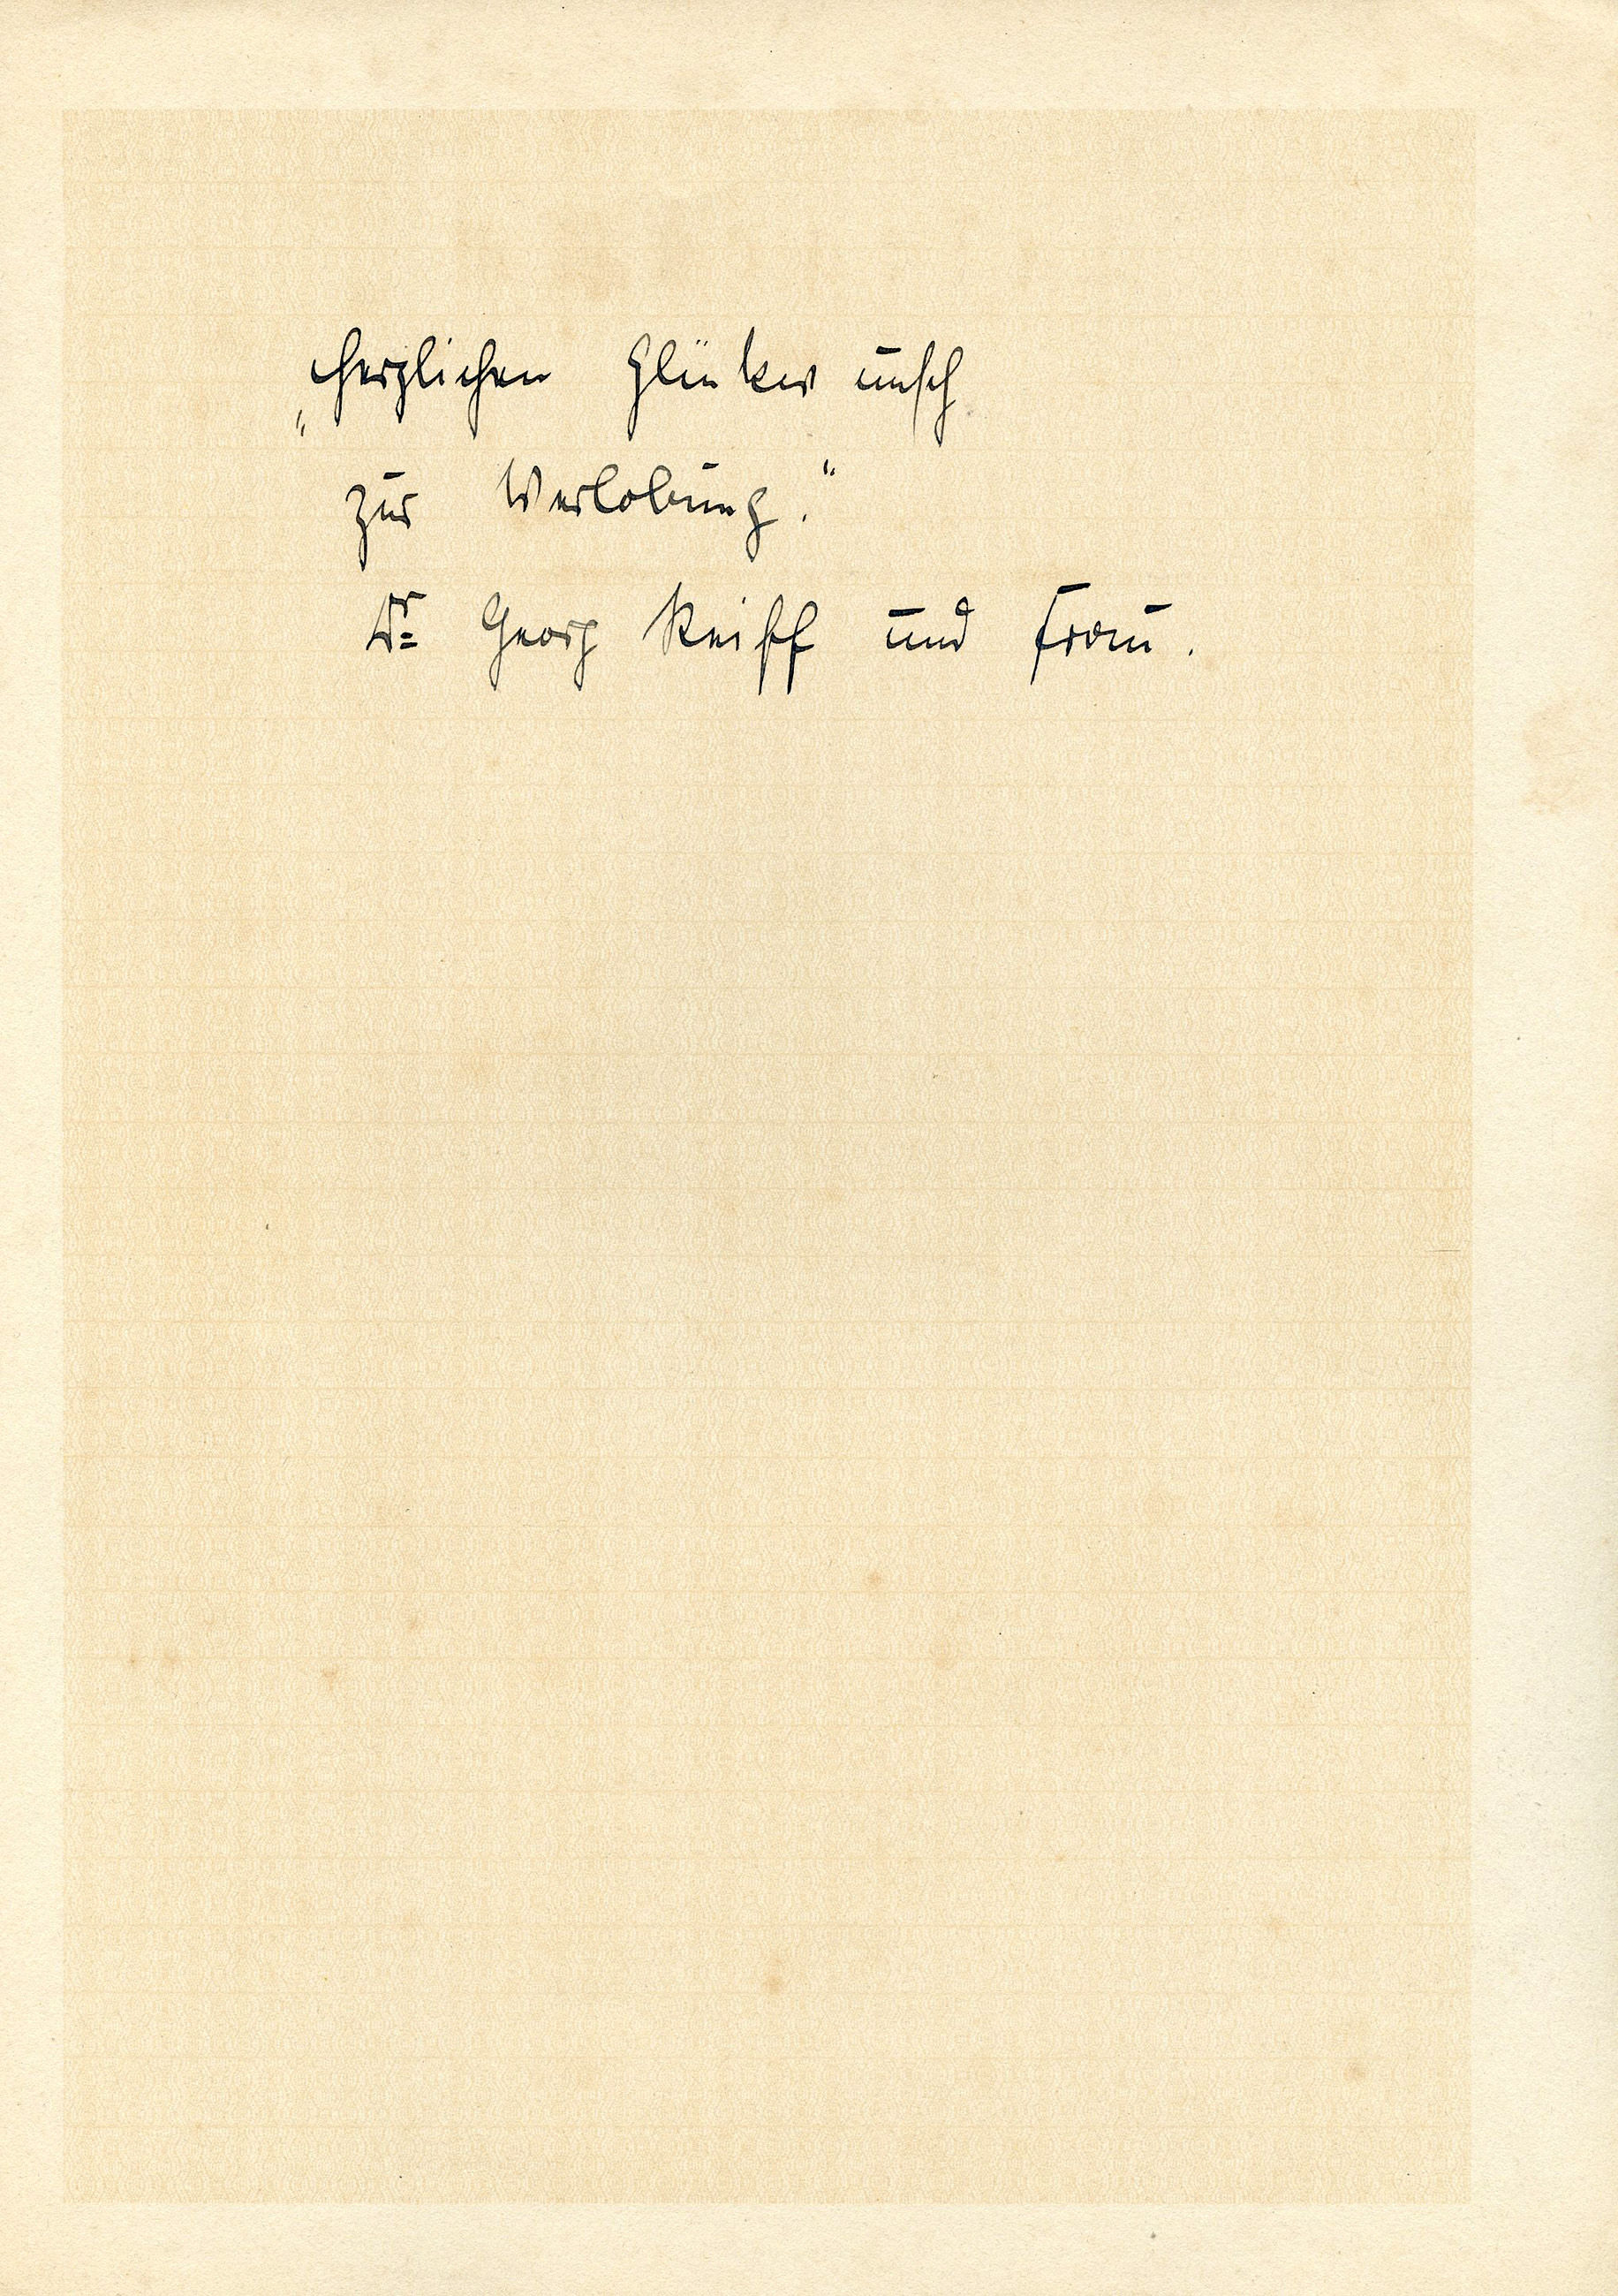 „Herzlichen Glükw unsch
zur Werlobung.“
Dr Georg Reiff und Frau.